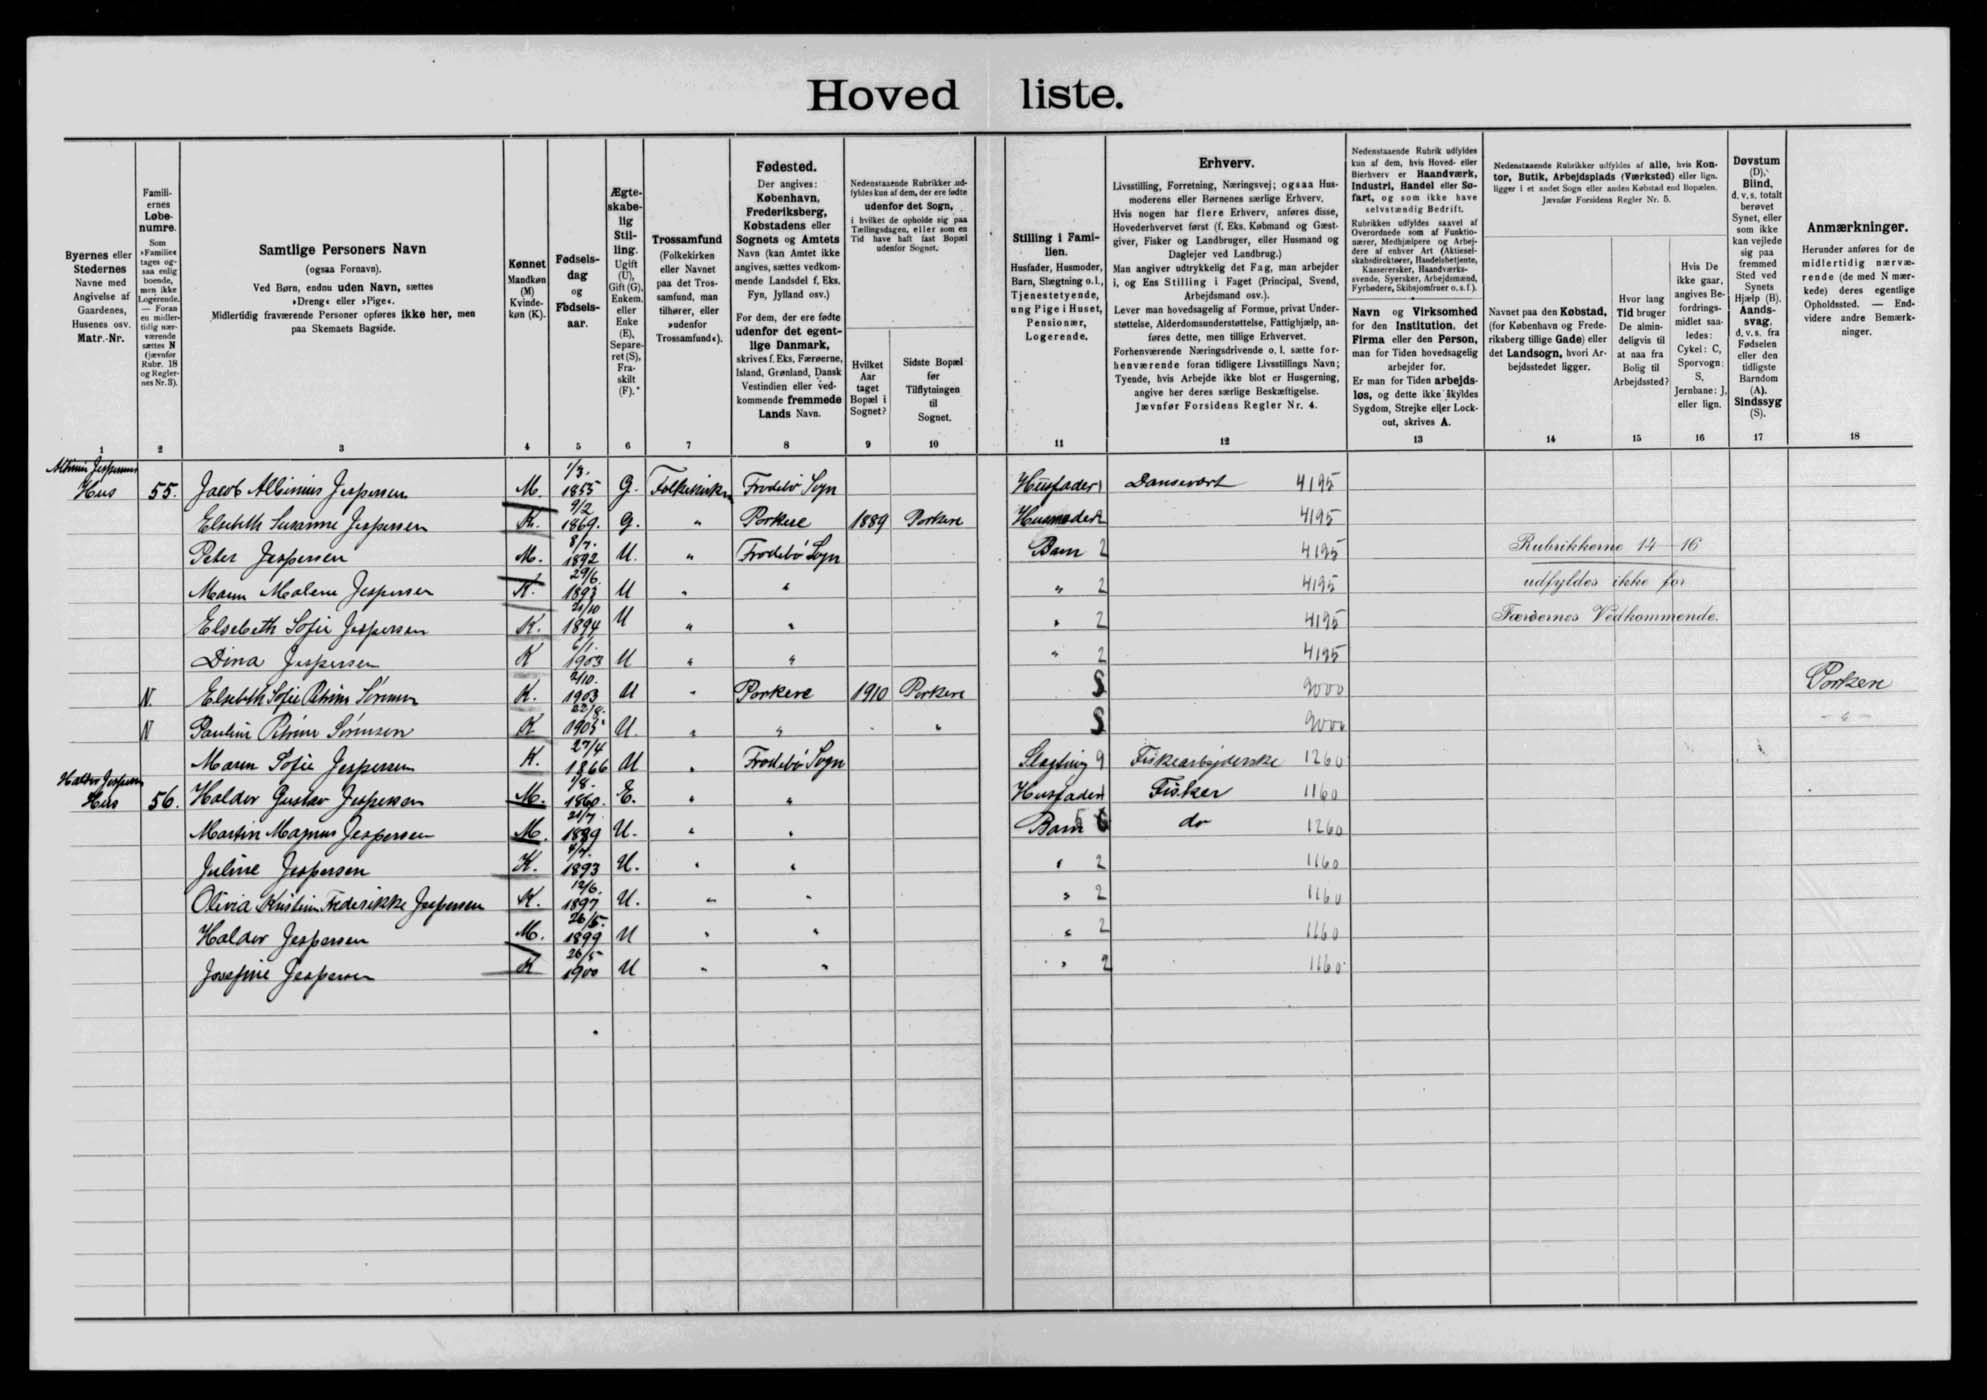 Hovedliste.
Byernes eller Stedernes Navne med Angivelse af Gaardenes, Husenes osv. Matr.-Nr.
Familiernes Løbenumre. Som »Familie« tages ogsaa enlig boende, men ikke Logerende. — Foran en midlertidig nærværende sættes N (jævnfør Rubr. 18 og Regler­nes Nr. 3).
Samtlige Personers Navn (ogsaa Fornavn). Ved Børn, endnu uden Navn, sættes »Dreng« eller »Pige«. Midlertidig fraværende Personer opføres ikke her, men paa Skemaets Bagside.
Kønnet Mandkøn (M) Kvindekøn (K).
Fødselsdag og Fødselsaar.
Ægteskabelig Stilling. Ugift (U), Gift (G), Enkem. eller Enke (E), Separeret (S), Fraskilt (F).
Trossamfund (Folkekirken eller Navnet paa det Trossamfund, man tilhører, eller »udenfor Trossamfund«).
Fødested. Der angives: København, Frederiksberg, Købstadens eller Sognets og Amtets Navn (kan Amtet ikke angives, sættes vedkommende Landsdel f. Eks. Fyn, Jylland osv.) For dem, der ere fødte udenfor det egentlige Danmark, skrives f. Eks. Færøerne, Island, Grønland, Dansk Vestindien eller vedkommende fremmede Lands Navn.
Nedenstaaende Rubrikker udfyldes kun af dem, der ere fødte udenfor det Sogn, i hvilket de opholde sig paa Tællingsdagen, eller som en Tid have haft fast Bopæl udenfor Sognet.
Hvilket Aar taget Bopæl i Sognet?
Sidste Bopæl før Tilflytningen til Sognet.
Stilling i Familien. Husfader, Husmoder, Barn, Slægtning o. l., Tjenestetyende, ung Pige i Huset, Pensionær, Logerende.
Erhverv. Livsstilling, Forretning, Næringsvej; ogsaa Husmoderens eller Børnenes særlige Erhverv. Hvis nogen har flere Erhverv, anføres disse, Hovederhvervet først (f. Eks. Købmand og Gæstgiver, Fisker og Landbruger, eller Husmand og Daglejer ved Landbrug.) Man angiver udtrykkelig det Fag, man arbejder i, og Ens Stilling i Faget (Principal, Svend, Arbejdsmand osv.). Lever man hovedsagelig af Formue, privat Understøttelse, Alderdomsunderstøttelse, Fattighjælp, anføres dette, men tillige Erhvervet. Forhenværende Næringsdrivende o. l. sætte forhenværende foran tidligere Livsstillings Navn; Tyende, hvis Arbejde ikke blot er Husgerning, angive her deres særlige Beskæftigelse. Jævnfør Forsidens Regler Nr. 4.
Nedenstaaende Rubrik udfyldes kun af dem, hvis Hoved- eller Bierhverv er Haandværk, Industri, Handel eller Søfart, og som ikke have selvstændig Bedrift.
Rubrikken udfyldes saavel af Overordnede som af Funktionærer, Medhjælpere og Arbejdere af enhver Art (Aktieselskabsdirektører, Handelsbetjente, Kasserersker, Haandværkssvende, Syersker, Arbejdsmænd, Fyrbødere, Skibsjomfruer o. s. f.).
Navn og Virksomhed for den Institution, det Firma eller den Person, man for Tiden hovedsagelig arbejder for. Er man for Tiden arbejdsløs, og dette ikke skyldes Sygdom, Strejke eller Lockout, skrives A.
Nedenstaaende Rubrikker udfyldes af alle, hvis Kontor, Butik, Arbejdsplads (Værksted) eller lign. ligger i et andet Sogn eller anden Købstad end Bopælen. Jævnfør Forsidens Regler Nr. 5.
Navnet paa den Købstad, (for København og Frederiksberg tillige Gade) eller det Landsogn, hvori Arbejdsstedet ligger.
Hvor lang Tid bruger De almindeligvis til at naa fra Bolig til Arbejdssted?
Hvis De ikke gaar, angives Befordringsmidlet saaledes: Cykel: C, Sporvogn: S, Jernbane: J, eller lign.
Døvstum (D), Blind, d. v. s. totalt berøvet Synet, eller som ikke kan vejlede sig paa fremmed Sted ved Synets Hjælp (B). Aandssvag, d. v. s. fra Fødselen eller den tidligste Barndom (A). Sindssyg (S).
Anmærkninger. Herunder anføres for de midlertidig nærværende (de med N mærkede) deres egentlige Opholdssted. — Endvidere andre Bemærkninger.
1 2 3 4 5 6 7 8 9 10 11 12 13 14 15 16 17 18
Albinus Jespersens
Hus 55. Jacob Albinius Jespersen M. 1/3. 1855 G. Folkekirken Frodebø Sogn Husfader 1 Dansevært 4195
Elsebeth Susanne Jespersen K. 9/2 1869. G. " Porkere 1889 Porkere Husmoder 2 4195
Peter Jespersen M. 8/7. 1892 U. " Frodebø Sogn Barn 2 4195 Rubrikkerne 14-16
Maren Malene Jespersen K. 29/6. 1893 U " " " 2 4195 udfyldes ikke for
Elsebeth Sofie Jespersen K. 21/10 1894 U " " " 2 4195 Færøernes Vedkommende.
Dina Jespersen K 6/1. 1903 U " " " 2 4195
N. Elsebeth Sofie Petrine Sørensen K. 2/10. 1903 U " Porkere 1910 Porkere S 9000 Porkere
N Pauline Petrine Sørensen K 22/8. 1905 U. " " " S 9000 - " -
Maren Sofie Jespersen K. 27/4 1866 U " Frodebø Sogn Slægtning 9 Fiskearbejderske 1260
Haldor Jespersens
Hus 56. Haldor Gustav Jespersen M. 1/8. 1860. E. " " Husfader 1 Fisker 1160
Martin Magnus Jespersen M. 21/7. 1889 U. " " Barn 5 do 1260
Juline Jespersen K. 4/7. 1893 U. " " " 2 1160
Olivia Kristine Frederikke Jespersen K. 12/6. 1897 U. " " " 2 1160
Haldor Jespersen M. 26/5. 1899 U " " " 2 1160
Josefine Jespersen K 26/5 1900 U " " " 2 1160